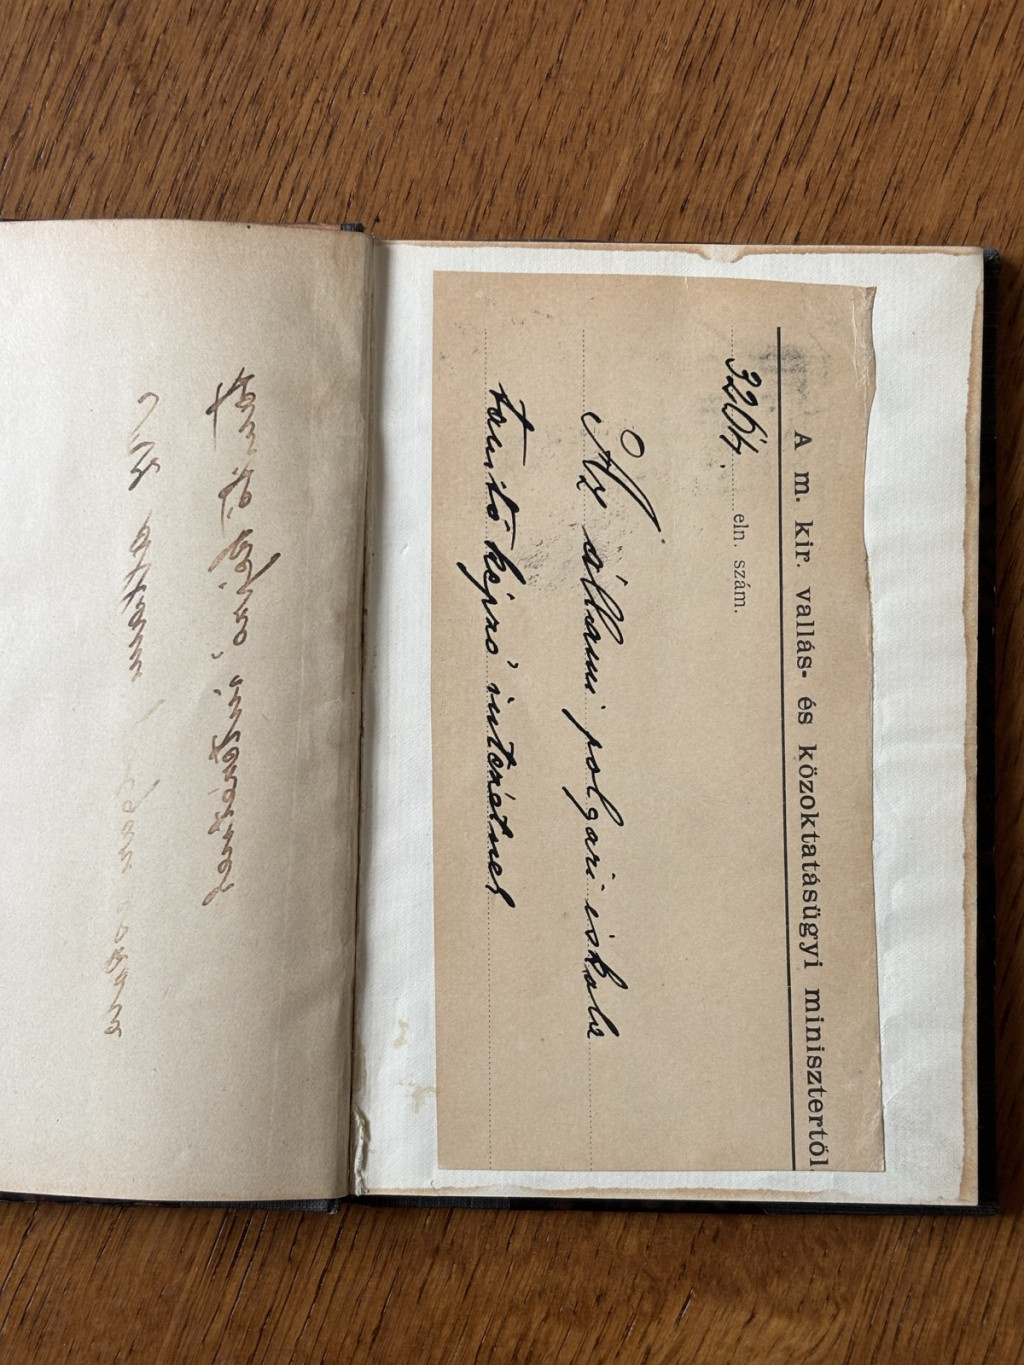 A m. kir. vallás- és közoktatásügyi minisztertől
3264. eln. szám.
Az állami polgari iskola
tanitó képző intézetnek